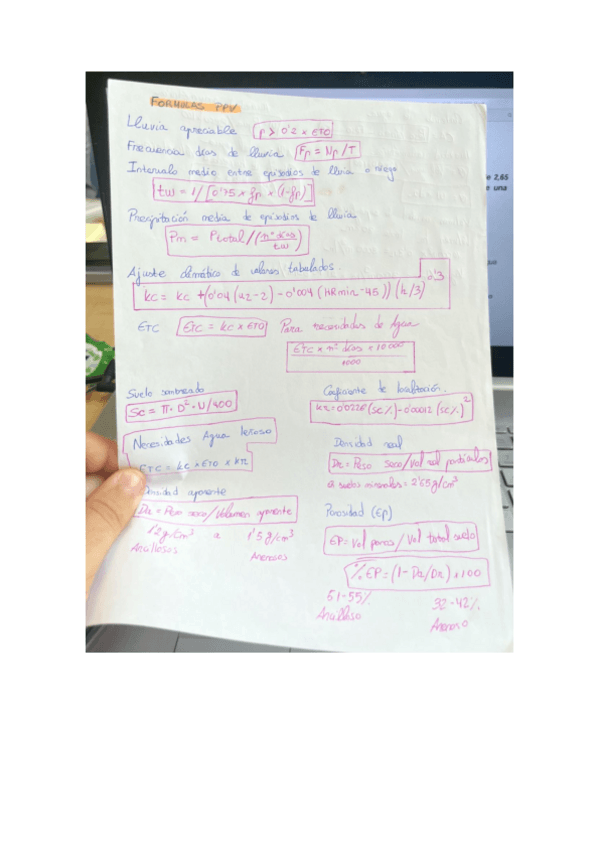 FORMULAS PPV
Lluvia apreciable P > 0'2 × ETO
Frecuencia días de lluvia Fp = Np/T
Intervalo medio entre episodios de lluvia o riego
tw = 1/[0'75 × fp × (1-fp)]
Precipitación media de episodios de lluvia
Pm = Ptotal/(nº días/tw)
Ajuste climático de valores tabulados
Kc = Kc + (0'04 (u2-2) - 0'004 (HRmin-45)) (h/3)^0'3
ETC ETC = Kc × ETO Para necesidades de Agua
ETC × nº días × 10000
1000
Suelo sombreado
Sc = π · D² · N/400
Coeficiente de localización.
Kr = 0'0226 (Sc%) - 0'00012 (Sc%)²
Necesidades Agua leñoso
ETC = Kc × ETO × Kr
Densidad real
Dr = Peso seco/Vol real partículas
suelos minerales = 2'65 g/cm³
aparente
Da = Peso seco/Volumen aparente
1'2 g/cm³ a 1'5 g/cm³
Arcillosos Arenosos
Porosidad (EP)
EP = Vol poros/Vol total suelo
% EP = (1 - Da/Dr) × 100
51-55% 32-42%
Arcilloso Arenoso
e 2,65
e una